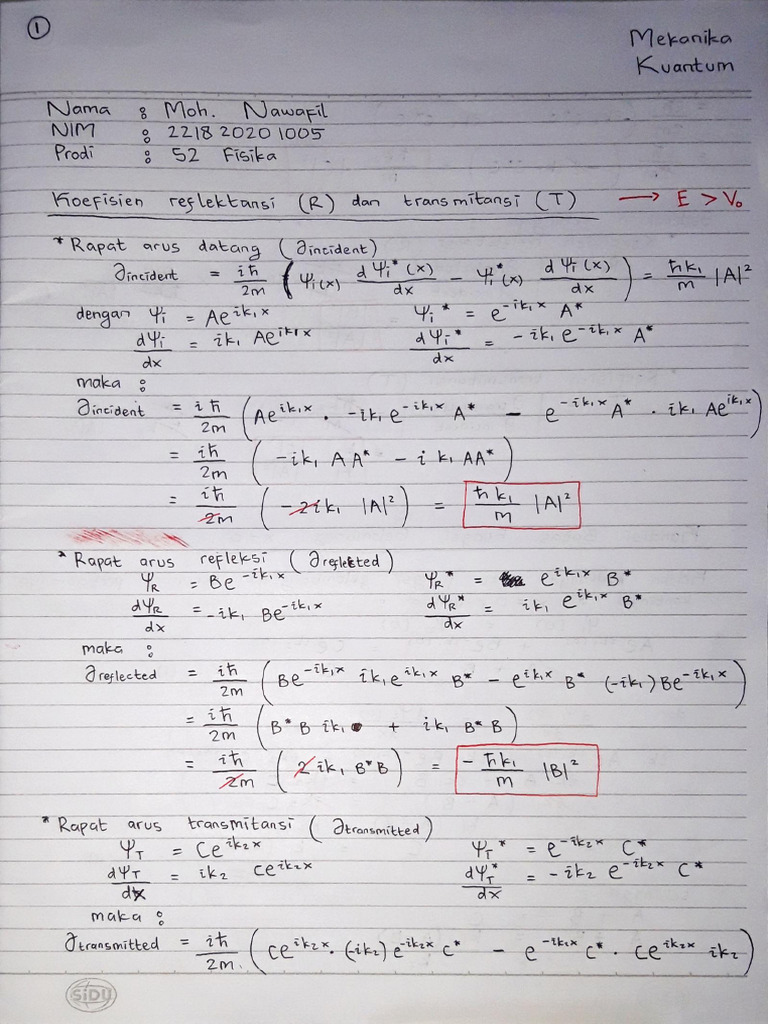 ①
Mekanika
Kuantum
Nama : Moh. Nawafil
NIM : 2218 2020 1005
Prodi : S2 Fisika
Koefisien reflektansi (R) dan transmitansi (T) → E > V₀
* Rapat arus datang (∂incident)
∂incident = iħ/2m (Ψi(x) dΨi*(x)/dx − Ψi*(x) dΨi(x)/dx) = ħk₁/m |A|²
dengan Ψi = Ae^{ik₁x}    Ψi* = e^{-ik₁x} A*
dΨi/dx = ik₁ Ae^{ik₁x}    dΨi*/dx = -ik₁ e^{-ik₁x} A*
maka :
∂incident = iħ/2m (Ae^{ik₁x} · -ik₁ e^{-ik₁x} A* − e^{-ik₁x} A* · ik₁ Ae^{ik₁x})
= iħ/2m (-ik₁ A A* − i k₁ AA*)
= iħ/2m (-2ik₁ |A|²) = ħk₁/m |A|²
* Rapat arus refleksi (∂reflected)
ΨR = Be^{-ik₁x}    ΨR* = e^{ik₁x} B*
dΨR/dx = -ik₁ Be^{-ik₁x}    dΨR*/dx = ik₁ e^{ik₁x} B*
maka :
∂reflected = iħ/2m (Be^{-ik₁x} ik₁e^{ik₁x} B* − e^{ik₁x} B* (-ik₁) Be^{-ik₁x})
= iħ/2m (B* B ik₁ + ik₁ B* B)
= iħ/2m (2ik₁ B* B) = -ħk₁/m |B|²
* Rapat arus transmitansi (∂transmitted)
ΨT = Ce^{ik₂x}    ΨT* = e^{-ik₂x} C*
dΨT/dx = ik₂ Ce^{ik₂x}    dΨT*/dx = -ik₂ e^{-ik₂x} C*
maka :
∂transmitted = iħ/2m. (Ce^{ik₂x} · (-ik₂) e^{-ik₂x} C* − e^{-ik₁x} C* · Ce^{ik₂x} ik₂)
SiDU